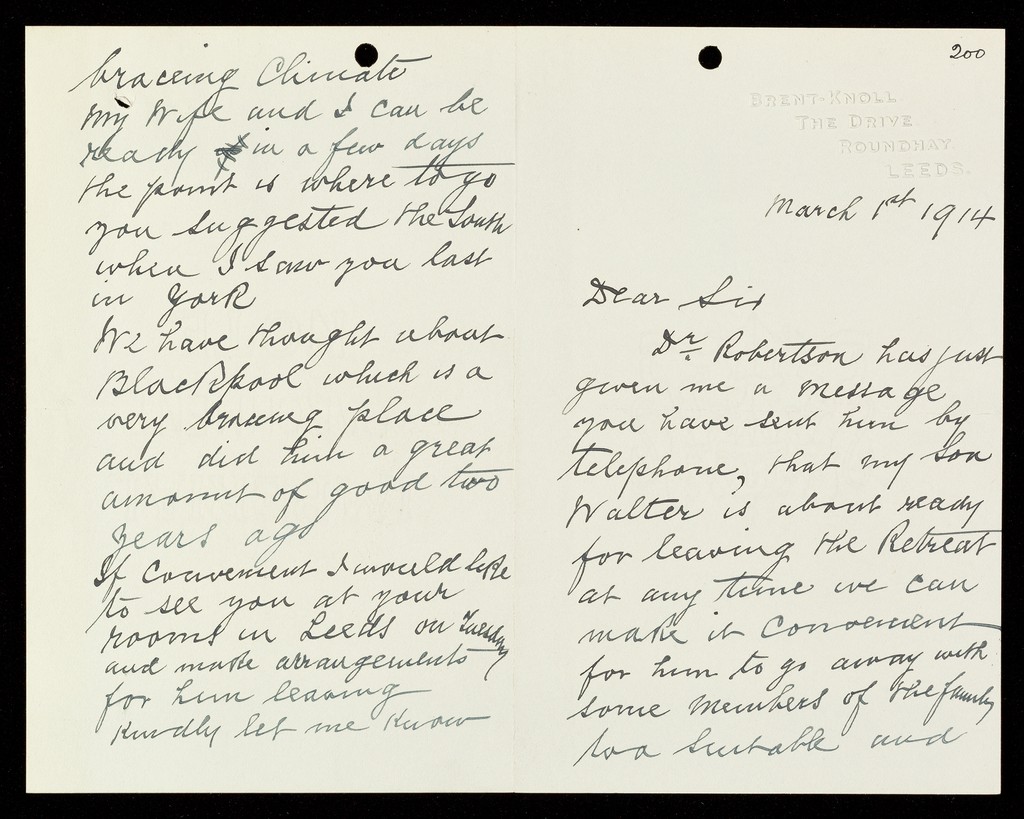 200
BRENT-KNOLL
THE DRIVE
ROUNDHAY
LEEDS.
March 1st 1914
Dear Sir
Dr. Robertson has just
given me a message
you have sent him by
telephone, that my Son
Walter is about ready
for leaving the Retreat
at any time we can
make it convenient
for him to go away with
some members of the family
to a suitable and
braceing Climate
My Wife and I can be
ready in a few days
the point is where to go
you suggested the South
when I saw you last
in York
We have thought about
Blackpool which is a
very braceing place
and did him a great
amount of good two
years ago
If convenient I would like
to see you at your
rooms in Leeds on Tuesday
and make arrangements
for him leaving
Kindly let me know